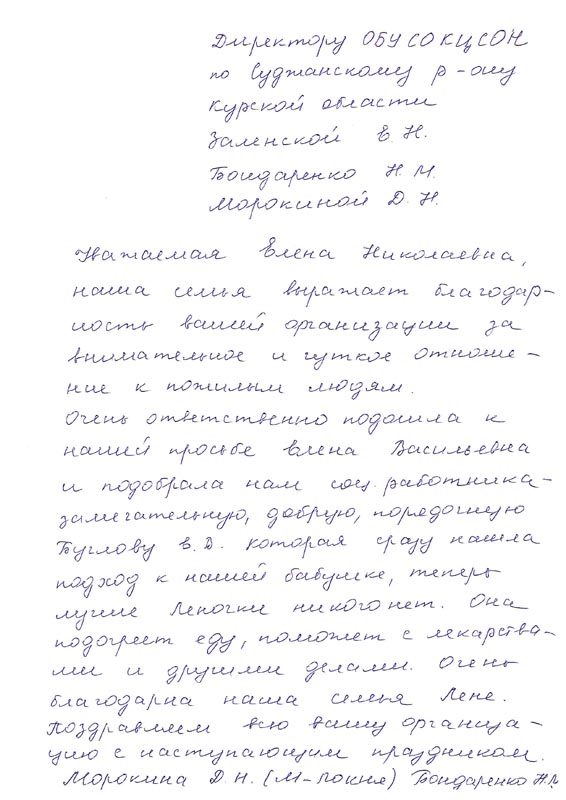 Директору ОБУСОКЦСОН
по Суджанскому р-ону
Курской области
Заленской Е. Н.
Бондаренко Н. М.
Морокиной Д. Н.
Уважаемая Елена Николаевна,
наша семья выражает благодар-
ность вашей организации за
внимательное и чуткое отноше-
ние к пожилым людям.
Очень ответственно подошла к
нашей просьбе Елена Васильевна
и подобрала нам соц. работника-
замечательную, добрую, порядочную
Буглову Е. Д. которая сразу нашла
подход к нашей бабушке, теперь
лучше Леночки никого нет. Она
подогреет еду, поможет с лекарства-
ми и другими делами. Очень
благодарна наша семья Лене.
Поздравляем всю вашу организа-
цию с наступающим праздником.
Морокина Д. Н. (М-Локня) Бондаренко Н. М.